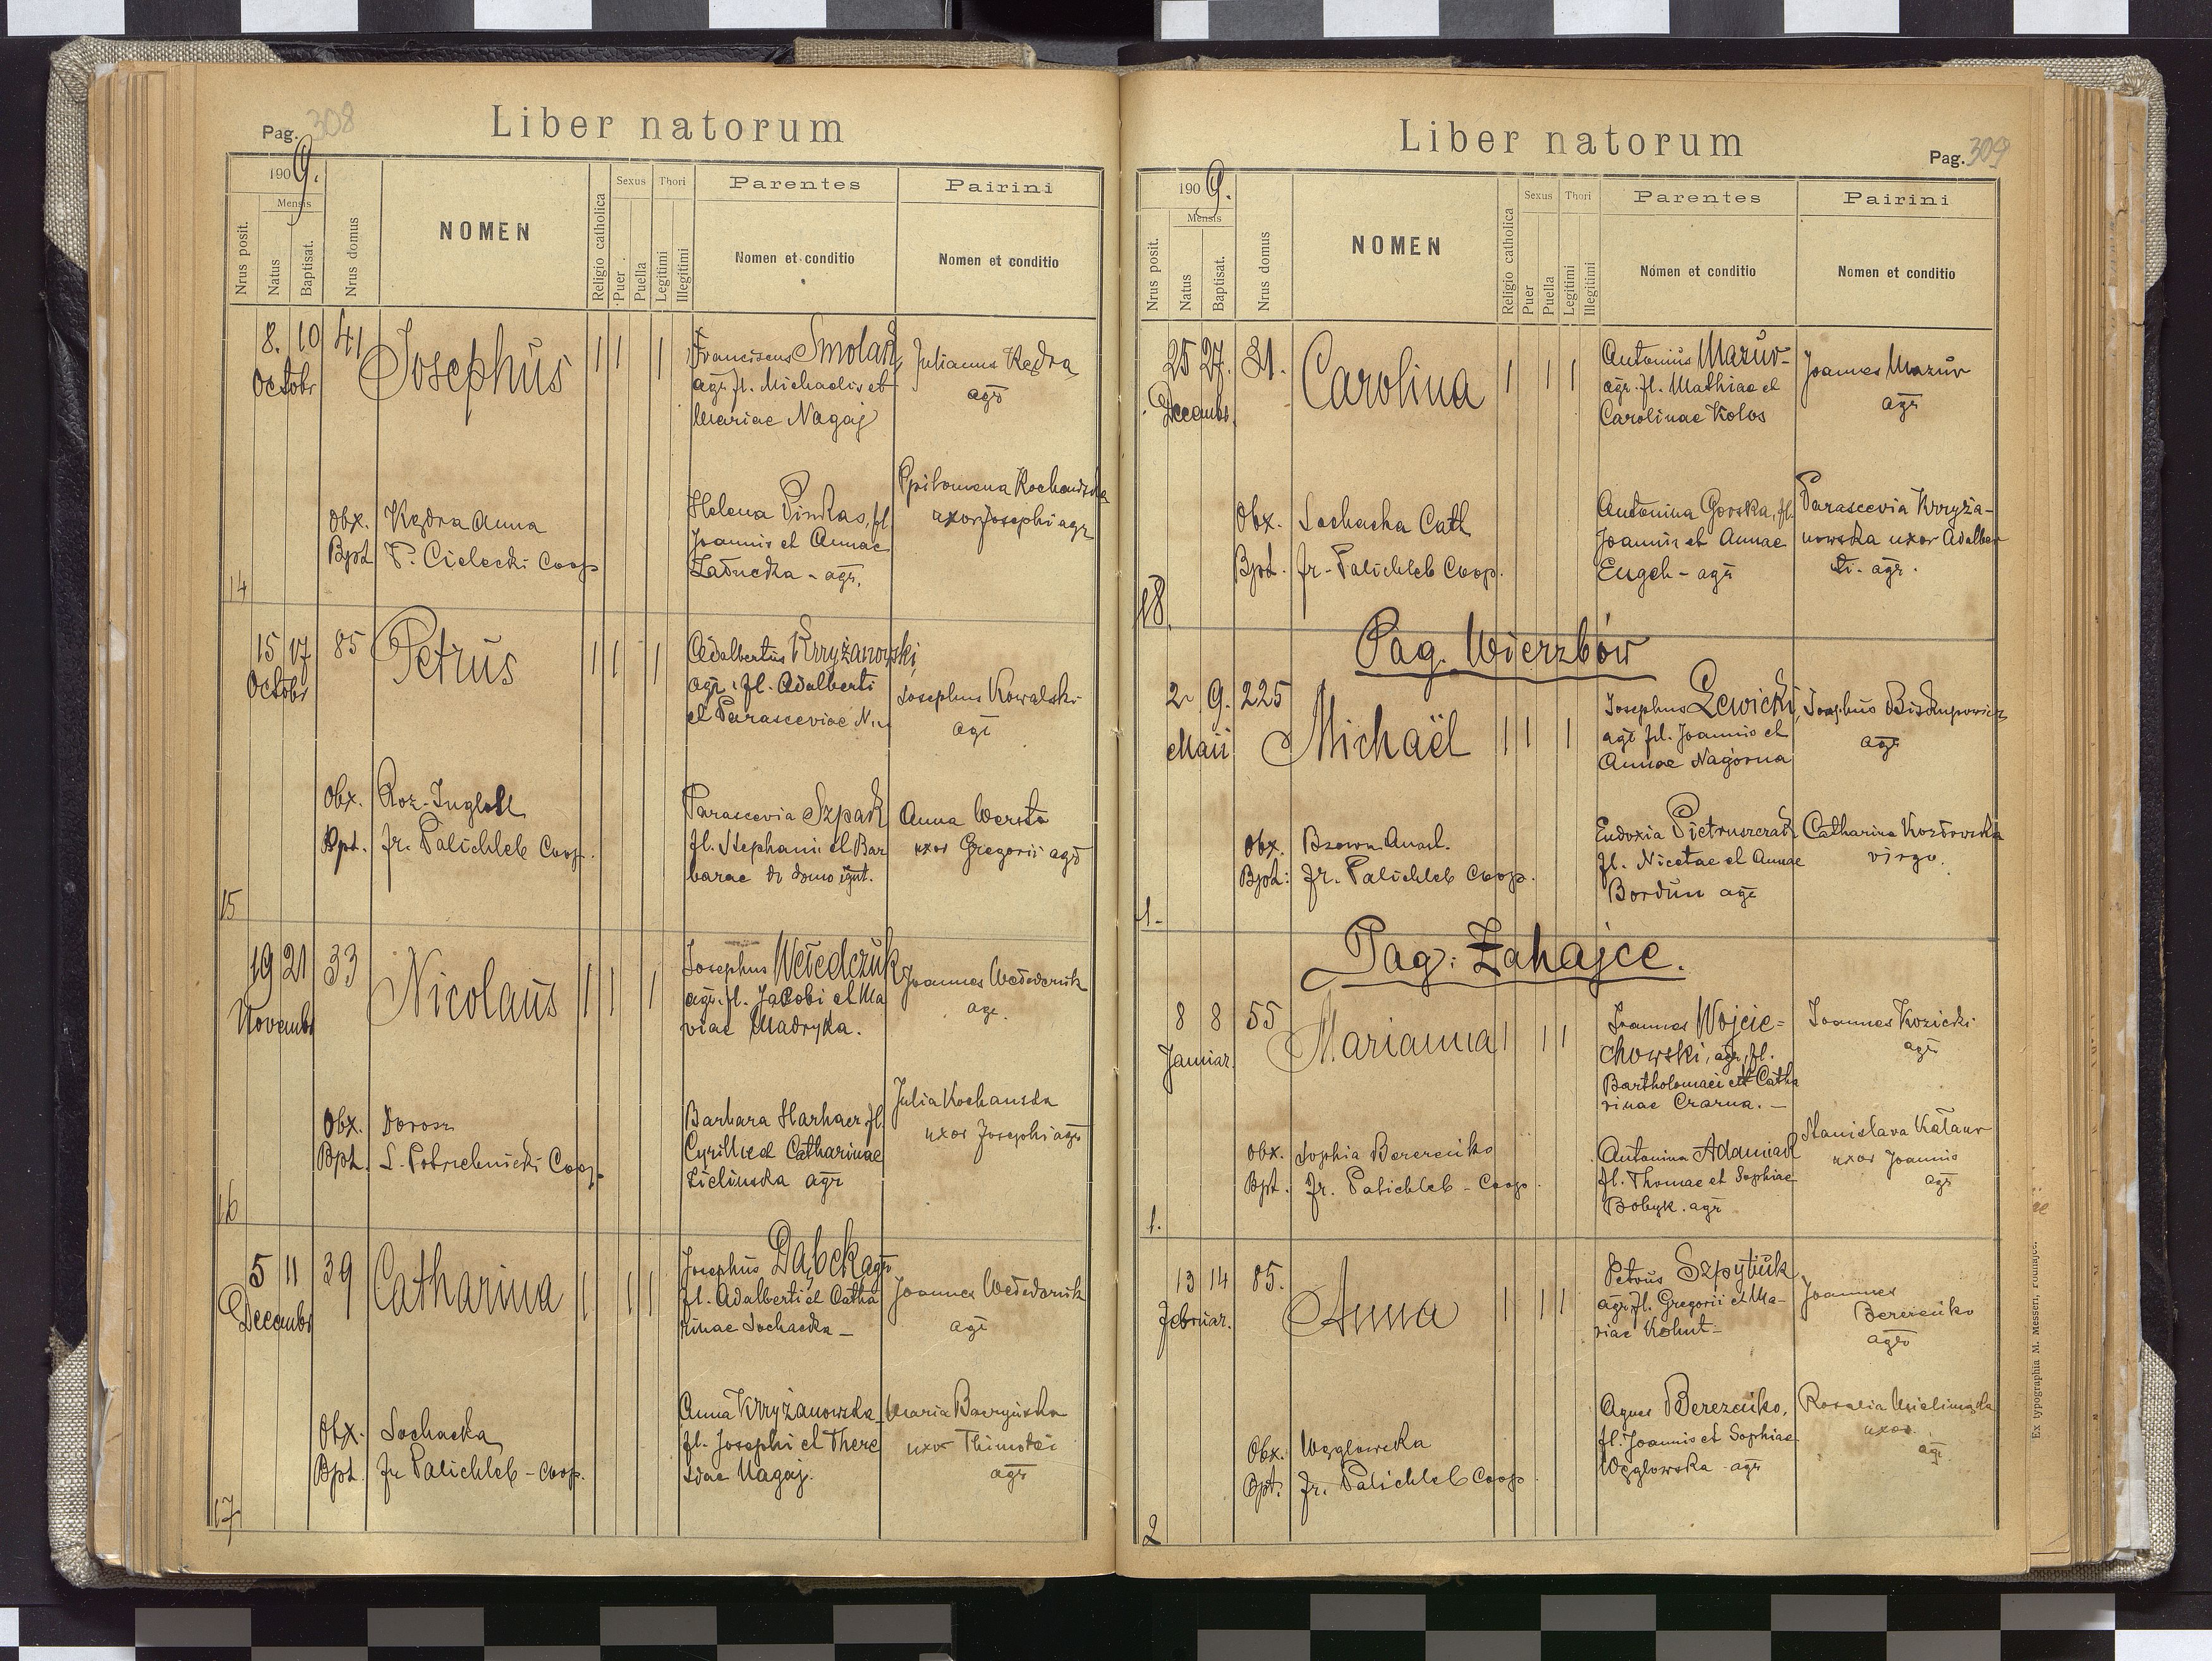 Pag. 308
Liber natorum
1909.
Mensis
Nrus posit.
Natus
Baptisat.
Nrus domus
NOMEN
Religio catholica
Sexus
Puer
Puella
Thori
Legitimi
Illegitimi
Parentes
Nomen et conditio
Pairini
Nomen et conditio
14
8. 10
Octobr
41
Josephus
1 1 1
Franciscus Smolak,
agr. fl. Michaelis et
Mariae Nagaj
Julianus Kędra
agr
Helena Pinkas, fl.
Joannis et Annae
agr.
uxor Josephi agr
Obx. Kędra Anna
Bpt F. Cielecki Coop
15
15 17
Octobr
85
Petrus
1 1 1
Adalbertus Krzyżanowski,
agr. fl. Adalberti
et Parasceviae N.
Josephus Kowalski
agr
Parascevia Szpak
fl. Stephani et Bar
barae de domo ignt.
Anna Wersta
uxor Gregorii agr
Obx. Roz. Inglott
Bpt. fr. Palichleb Coop.
16
19 21
Novembr
33
Nicolaus
1 1 1
Josephus
agr. fl. Jacobi et Ma
riae Madryka.
Joannes
agr.
Barbara Harhaer fl.
Cyrilli et Catharinae
Zielinska agr
Julia Kochanska
uxor Josephi agr
Obx. Dorosz
Bpt. Coop.
17
5 11
Decembr
39
Catharina
1 1 1
Josephus Dąbek agr
fl. Adalberti et Catha
rinae Sochacka –
Joannes
agr
Anna Krzyżanowska
fl. Josephi et There
siae Nagaj.
Maria
uxor Thimotei
agr
Obx. Sochacka
Bpt. fr Palichleb – Coop.
Liber natorum
Pag. 309
1909.
Mensis
Nrus posit.
Natus
Baptisat.
Nrus domus
NOMEN
Religio catholica
Sexus
Puer
Puella
Thori
Legitimi
Illegitimi
Parentes
Nomen et conditio
Pairini
Nomen et conditio
18.
25 27.
Decembr.
31.
Carolina
1 1 1
Antonius Mazur
agr. fl. Mathiae et
Carolinae Kolos
Joannes Mazur
agr
Antonina Gorska, fl.
Joannis et Annae
Engch – agr
Parascevia Krzyża-
nowska uxor Adalber
ti. agr.
Obx. Sochacka Cath
Bpt. fr. Palichleb Coop.
Pag. Wierzbów
1.
2 9.
Maii
225
Michaël
1 1 1
Josephus Lewicki,
agr fl. Joannis et
Annae Nagórna
Josephus Biskupowicz
agr
Eudoxia Pietruszczak
fl. Nicetae et Annae
Bordun agr
Catharina Kozłowska
virgo.
Obx.
Bpt: fr. Palichleb Coop.
Pag: Zahajce.
1.
8 8
Januar.
55
Marianna
1 1 1
Joannes Wojcie=
chowski, agr, fl.
Bartholomaei et Catha
rinae Czarna. –
Joannes Kozicki
agr
Antonina Adamiak
fl. Thomae et Sophiae
Bobyk. agr
Stanislava Kataur
uxor Joannis
agr
Obx. Sophia Berezeńko
Bpt. fr. Palichleb – Coop.
2
13 14
Februar.
85.
Anna
1 1 1
Petrus Szpytuk
agr fl. Gregorii et Ma-
riae Kohut –
Joannes
Berezeńko
agr
Agnes Berezeńko,
fl. Joannis et Sophiae
Węglowska agr
Rosalia
uxor
agr.
Obx. Węglowska
Bpt. fr. Palichleb Coop.
Ex typographia M. Messeri, Podhajce.